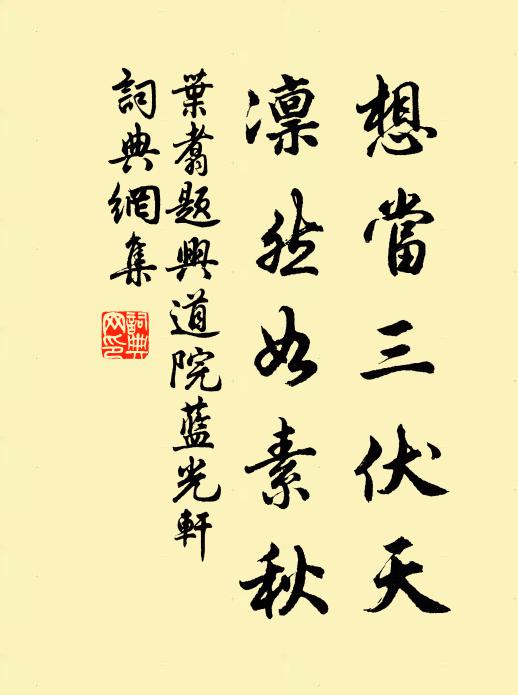 想當三伏天
凜然如素秋
葉翥題興道院藍光軒
詞典網集
詞典網印